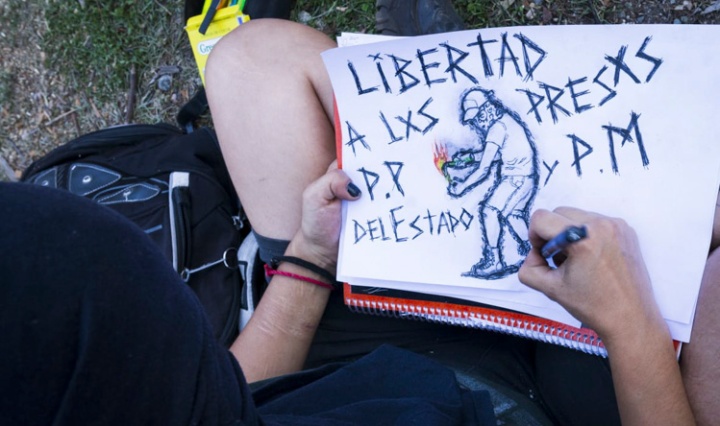 LIBERTAD
A LXS PRESXS
P.P y P.M
DEL ESTADO